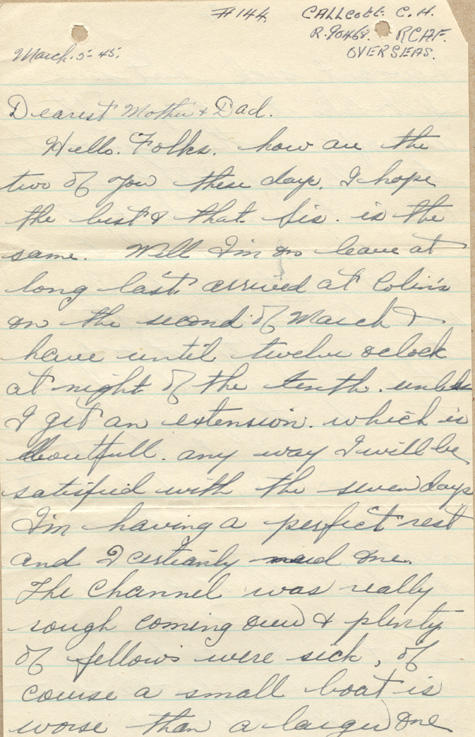 #144 CALLCOTT. C. H.
R.90468. RCAF.
March. 5-45. OVERSEAS.
Dearest Mother & Dad.
Hello. Folks. how are the
two of you these days, I hope
the best & that Sis. is the
same. Well I'm on leave at
long last arrived at Colin's
on the second of March &
have until twelve oclock
at night of the tenth. unless
I get an extension. which is
doutfull. any way I will be
satisfied with the seven days
I'm having a perfect rest
and I certianly need one.
The channel was really
rough coming over & plenty
of fellows were sick, of
course a small boat is
worse than a larger one